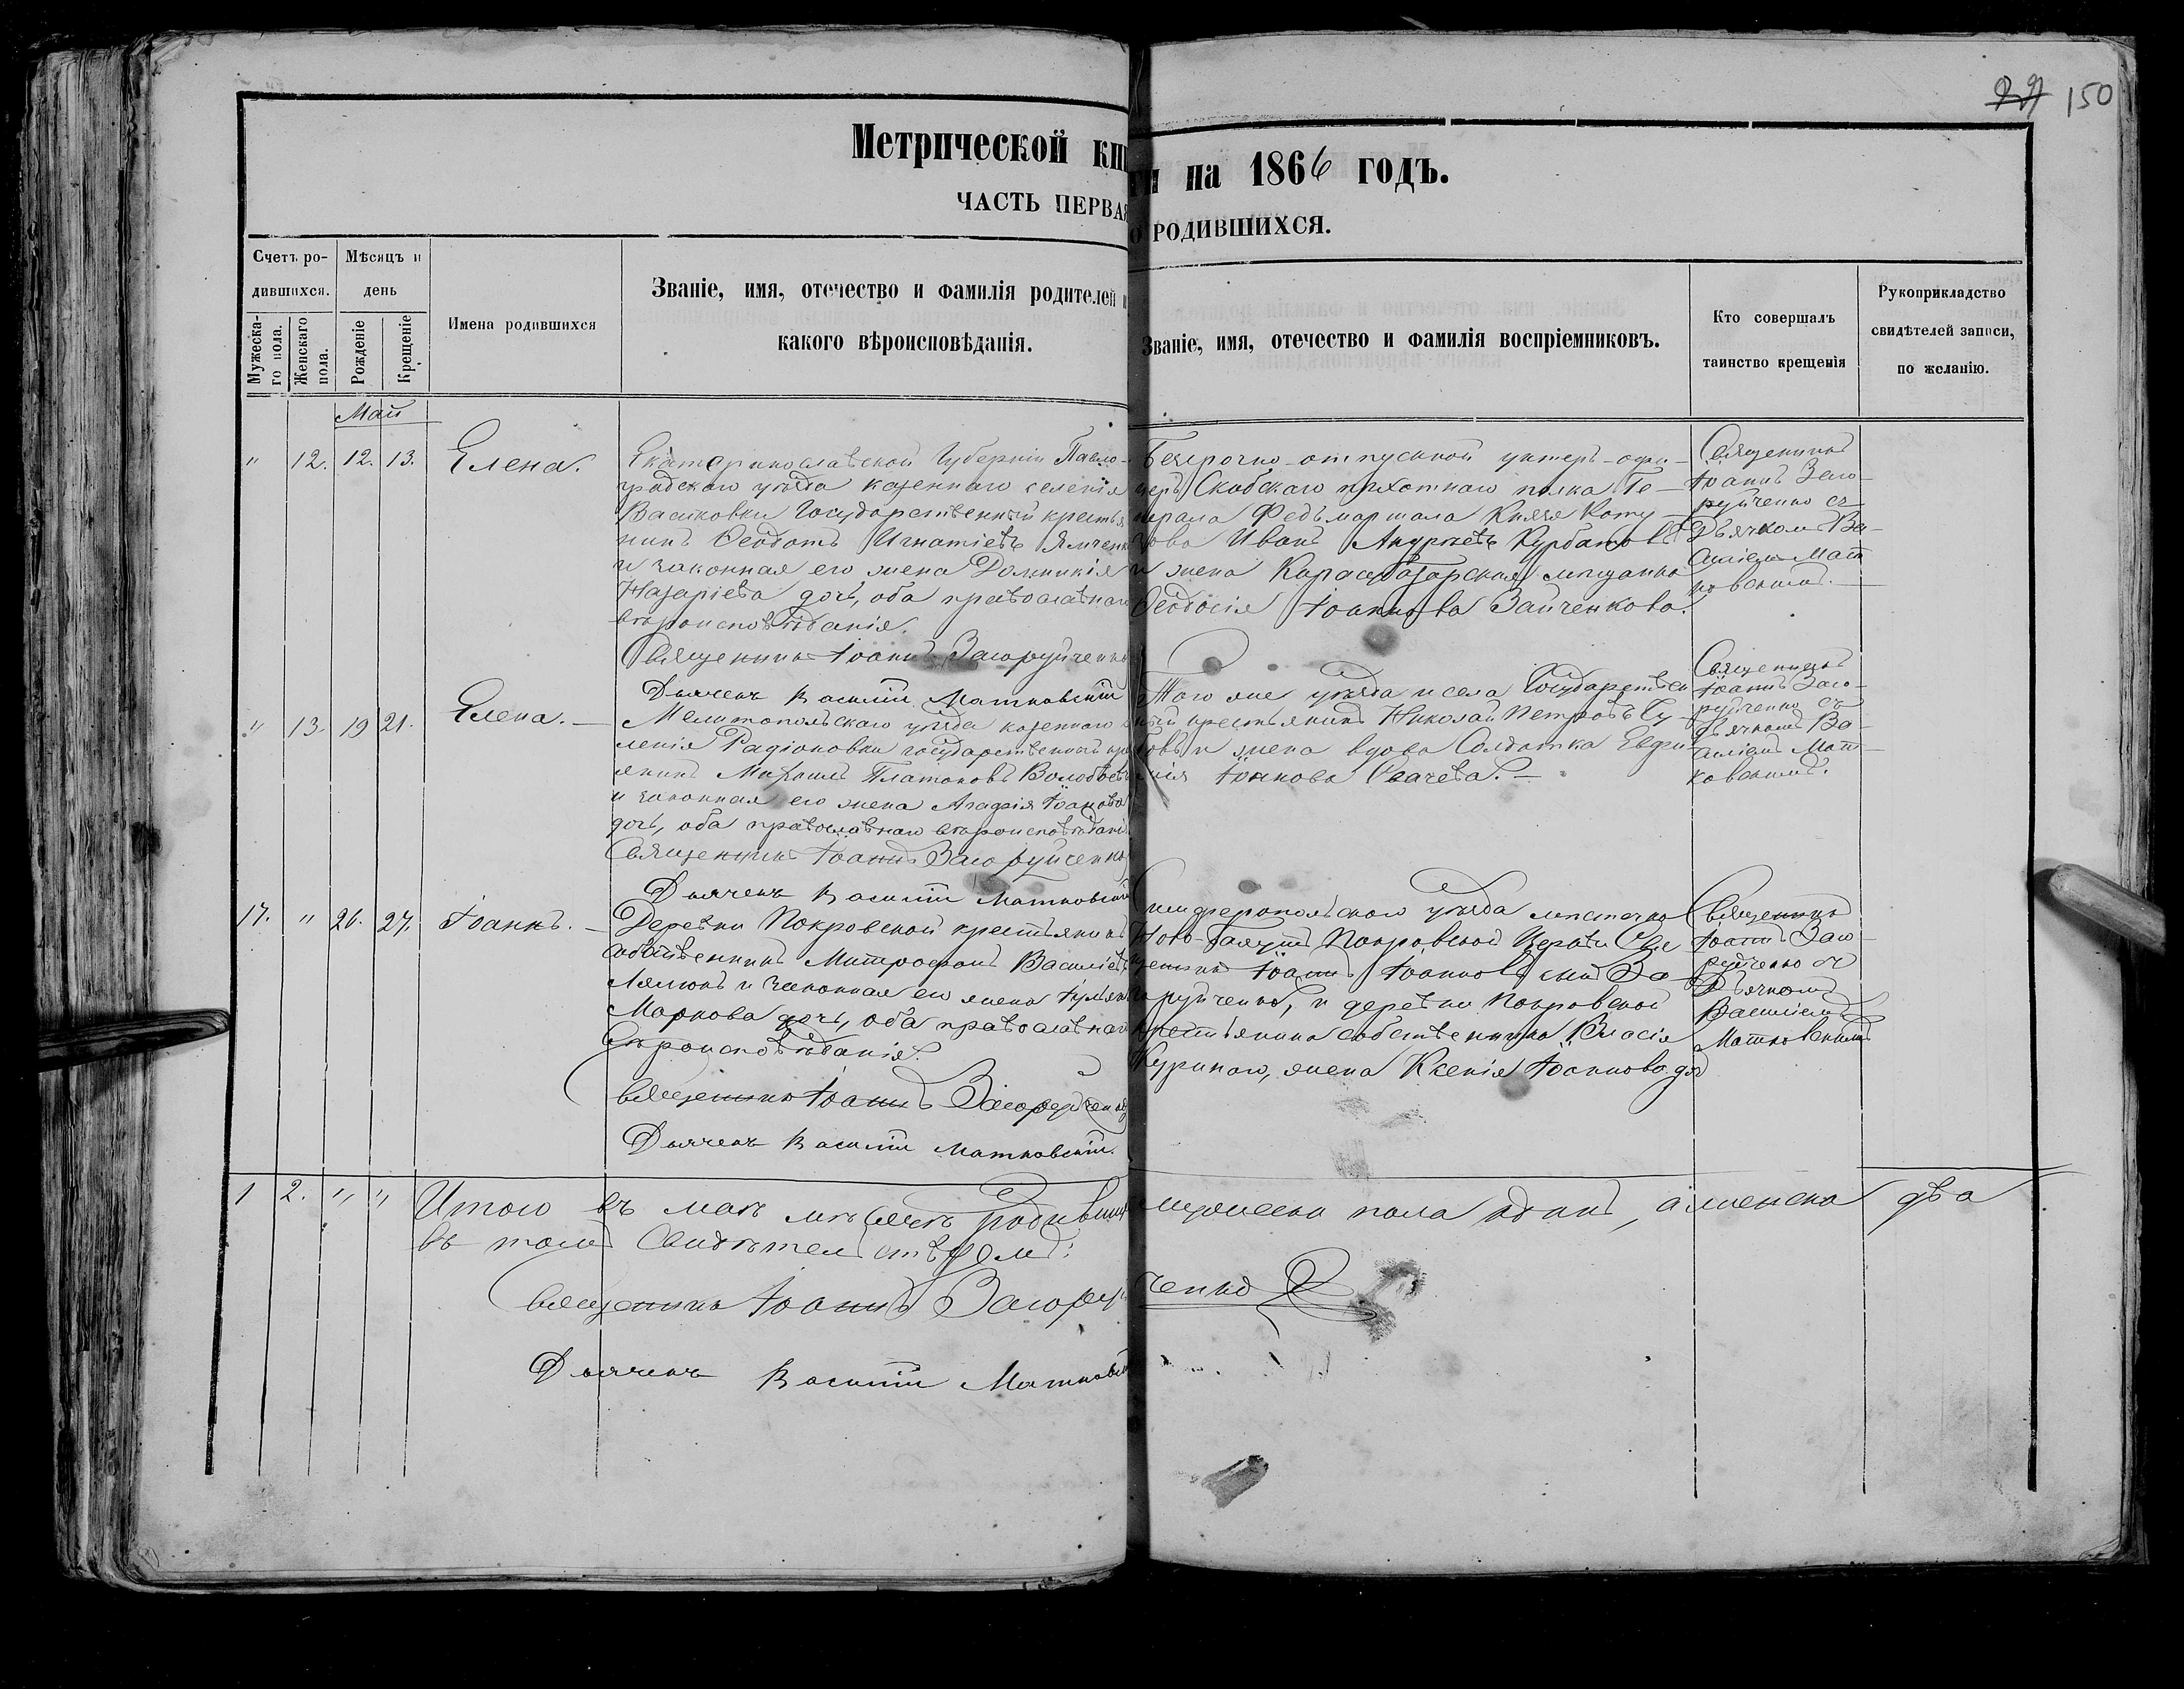 150
Метрической кни
ги на 1866 годъ.
ЧАСТЬ ПЕРВАЯ
О РОДИВШИХСЯ.
Счетъ ро-
дившихся.
Мужеска-
го пола.
Женскаго
пола.
Мѣсяцъ и
день
Рожденіе
Крещеніе
Имена родившихся
Званіе, имя, отечество и фамилія родителей и
какого вѣроисповѣданія.
Званіе, имя, отечество и фамилія воспріемниковъ.
Кто совершалъ
таинство крещенія
Рукоприкладство
свидѣтелей записи,
по желанію.
Май
" 12. 12. 13. Елена.
Екатеринославской Губерніи Павло-
градскаго уѣзда казеннаго селенія
Васиковки Государственный крестья
нинъ Ѳеодотъ Игнатіевъ Ямченк
и законная его жена Домникія
Назаріева дочь, оба православнаго
вѣроисповѣданія.
Священникъ Іоаннъ Загоруйченко
Дьячекъ Василій Матковскій
Безсрочно-отпускной унтеръ-офи-
церъ пѣхотнаго полка Ге-
нерала Федьмаршала Князя Куту-
зова Иванъ Андреевъ Курбатовъ
и жена Карасубазарская мѣщанка
Ѳеодосія Іоаннова Зайченкова.
Священникъ
Іоаннъ Заго-
руйченко съ
Дьячкомъ Ва-
силіемъ Мат
ковскимъ.
" 13. 19 21. Елена.
Мелитопольскаго уѣзда казеннаго се
ленія Радіоновки государственный кре
янинъ Платоновъ
и законная его жена Агафія Іоаннова
дочь, оба православнаго вѣроисповѣдані
Священникъ Іоаннъ Загоруйченко
Дьячекъ Василій Матковскій
Того же уѣзда и села Государствен
ный крестьянинъ Николай Петровъ Су-
ковъ и жена вдова Солдатка Евфи-
мія Іоаннова
Священникъ
Іоаннъ Заго-
руйченко съ
Дьячкомъ Ва-
силіемъ Мат-
ковскимъ.
17. " 26. 27. Іоаннъ.
Деревни Покровской крестьянинъ
собственникъ Митрофанъ Василіевъ
и законная его жена
Маркова дочь, оба православнаго
вѣроисповѣданія.
Священникъ Іоаннъ Загоруйченко
Дьячекъ Василій Матковскій.
Симферопольскаго уѣзда мѣстечка
Ново- Покровской Церкви Свя
щенникъ Іоаннъ Іоанновъ сынъ За
горуйченко, и деревни Покровской
крестьянина собственника Власія
Куринаго, жена Ксенія Іоаннова доч
Священникъ
Іоаннъ Заго
руйченко съ
Дьячкомъ
Василіемъ
Матковскимъ
1 2. " " Итого въ маѣ мѣсяцѣ родивши мужеска пола одинъ, а женска два
въ томъ Свидѣтельствуемъ:
Священникъ Іоаннъ Загоруй ченко
Дьячекъ Василій Матковск